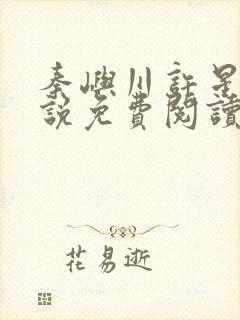 秦嶼川許是
說免費閱讀
花易逝